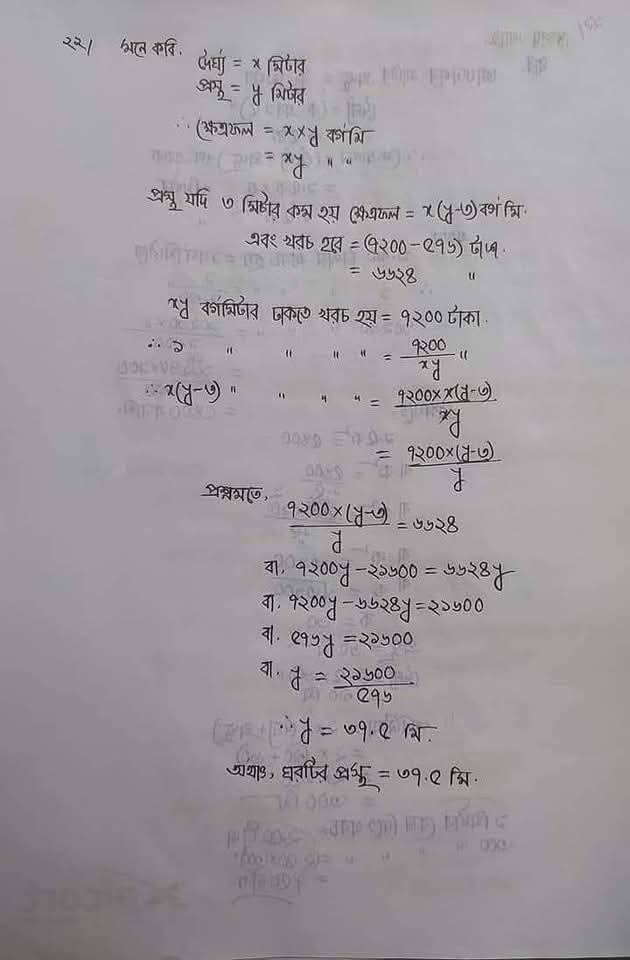 ২২। মনে করি.
দৈর্ঘ্য = x মিটার
প্রস্থ = y মিটার
∴ ক্ষেত্রফল = x×y বর্গমি
= xy " "
প্রস্থ যদি ৩ মিটার কম হয় ক্ষেত্রফল = x(y-৩) বর্গ মি.
এবং খরচ হবে = (৭২০০ - ৫৭৬) টাকা.
= ৬৬২৪ "
xy বর্গমিটার ঢাকতে খরচ হয় = ৭২০০ টাকা.
∴ ১ " " " " = ৭২০০/xy "
∴ x(y-৩) " " " " = ৭২০০×x(y-৩)/xy
= ৭২০০×(y-৩)/y
প্রশ্নমতে,
৭২০০×(y-৩)/y = ৬৬২৪
বা. ৭২০০y - ২১৬০০ = ৬৬২৪y
বা. ৭২০০y - ৬৬২৪y = ২১৬০০
বা. ৫৭৬y = ২১৬০০
বা. y = ২১৬০০/৫৭৬
∴ y = ৩৭.৫ মি.
অর্থাৎ, ঘরটির প্রস্থ = ৩৭.৫ মি.